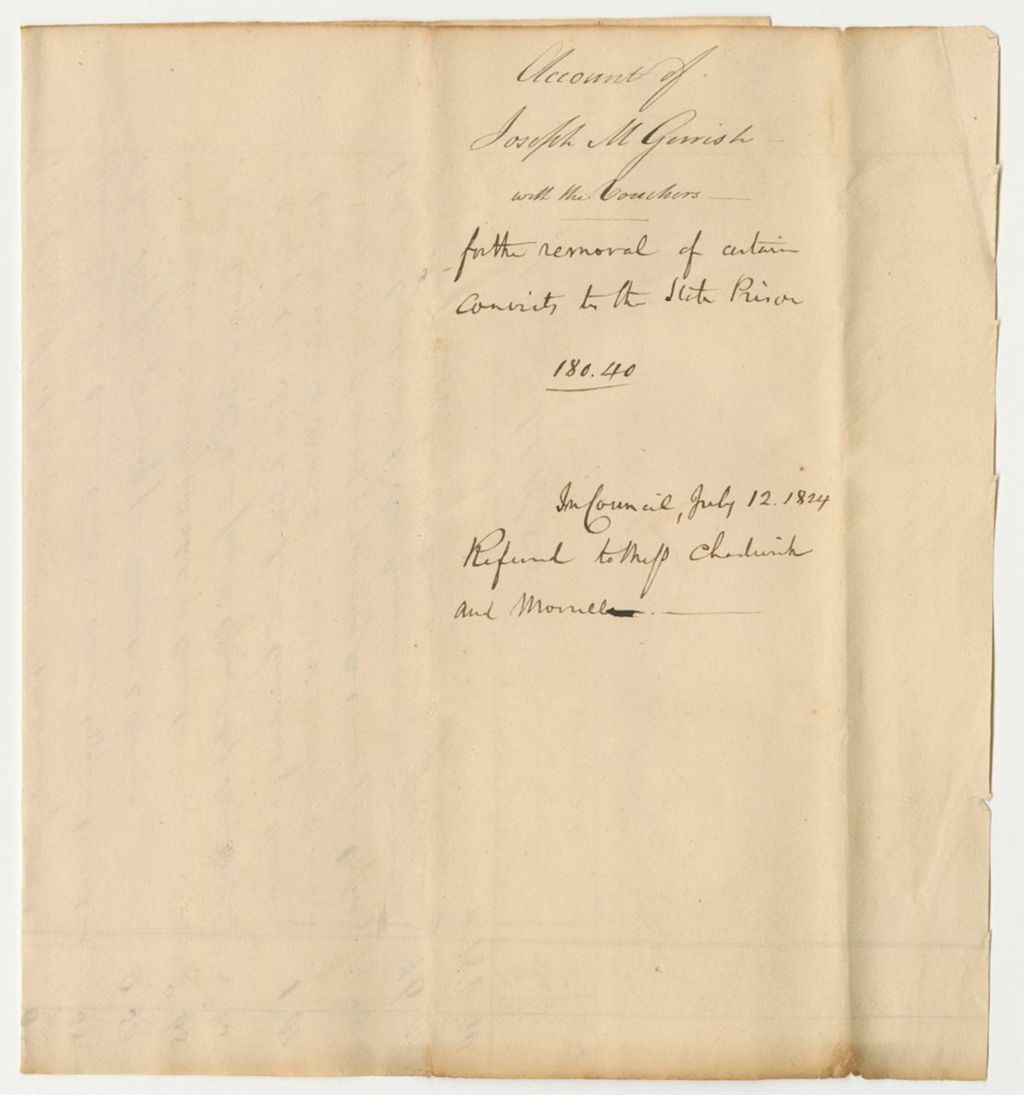 Account of
Joseph M Gerrish
with the Vouchers
for the removal of certain
Convicts to the State Prison
180.40
In Council, July 12. 1824
Referred to Mess Chadwick
and Morrell.